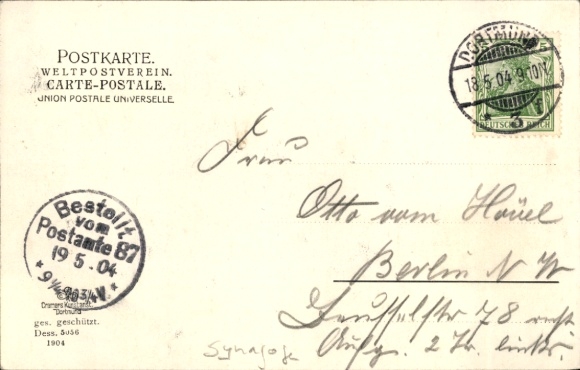 POSTKARTE.
WELTPOSTVEREIN.
CARTE-POSTALE.
UNION POSTALE UNIVERSELLE.
DORTMUND
18.5.04.9-10V.
* 3 f
DEUTSCHES REICH
Frau
Otto vom Hövel
Berlin N W
Beusselstr 78 recht
Aufg. 2 Tr. links.
Bestellt
vom
Postamte 87
19.5.04
Cramers Kunstanst.
Dortmund
ges. geschützt.
Dess. 5056
1904
Synagoge